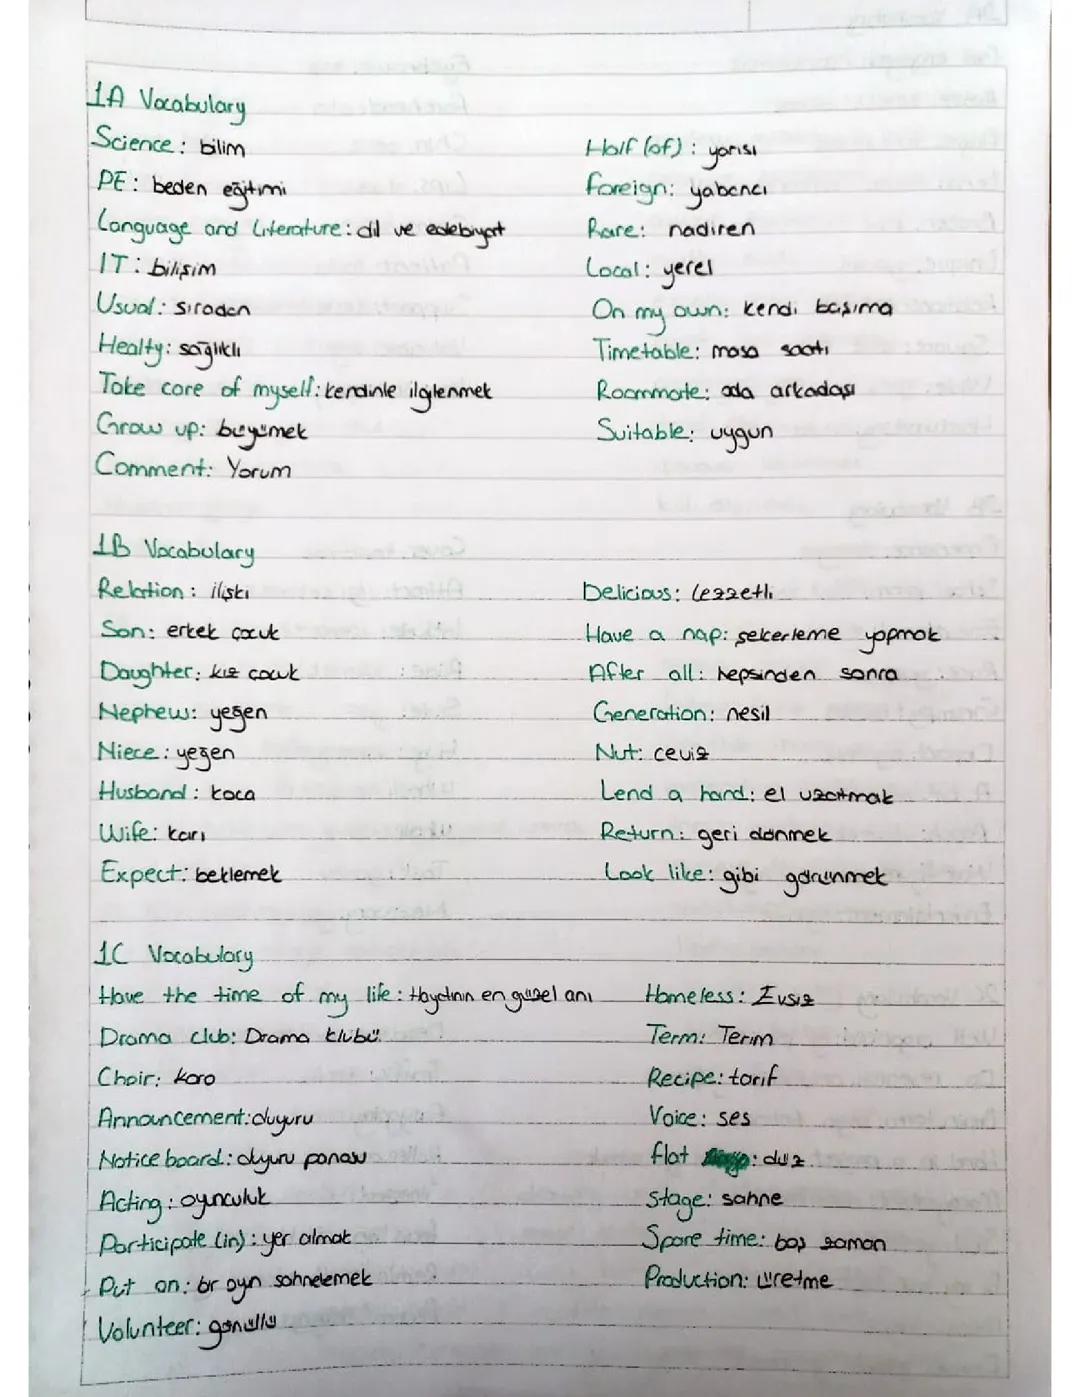 1A Vocabulary
Science: bilim
PE: beden eğitimi
Language and Literature: dil ve edebiyat
IT: bilişim
Usual: sıradan
Healty: sağlıklı
Take care of myself: kendinle ilgilenmek
Grow up: büyümek
Comment: Yorum
Half (of): yarısı
foreign: yabancı
Rare: nadiren
Local: yerel
On my own: kendi başıma
Timetable: masa saati
Roommate: oda arkadaşı
Suitable: uygun
1B Vocabulary
Relation: ilişki
Son: erkek çocuk
Daughter: kız çocuk
Nephew: yeğen
Niece: yeğen
Husband: koca
Wife: karı
Expect: beklemek
Delicious: Lezzetli
Have a nap: şekerleme yapmak
After all: hepsinden sonra
Generation: nesil
Nut: ceviz
Lend a hand: el uzatmak
Return: geri dönmek
Look like: gibi görünmek
1C Vocabulary
Have the time of my life: Haydının en güzel anı
Drama club: Drama klübü
Choir: koro
Announcement: duyuru
Notice board: duyuru panosu
Acting: oyunculuk
Participate (in): yer almak
Put on: bir oyun sahnelemek
Volunteer: gönüllü
Homeless: Evsiz
Term: Terim
Recipe: tarif
Voice: ses
flat : düz
Stage: sahne
Spare time: boş zaman
Production: üretme